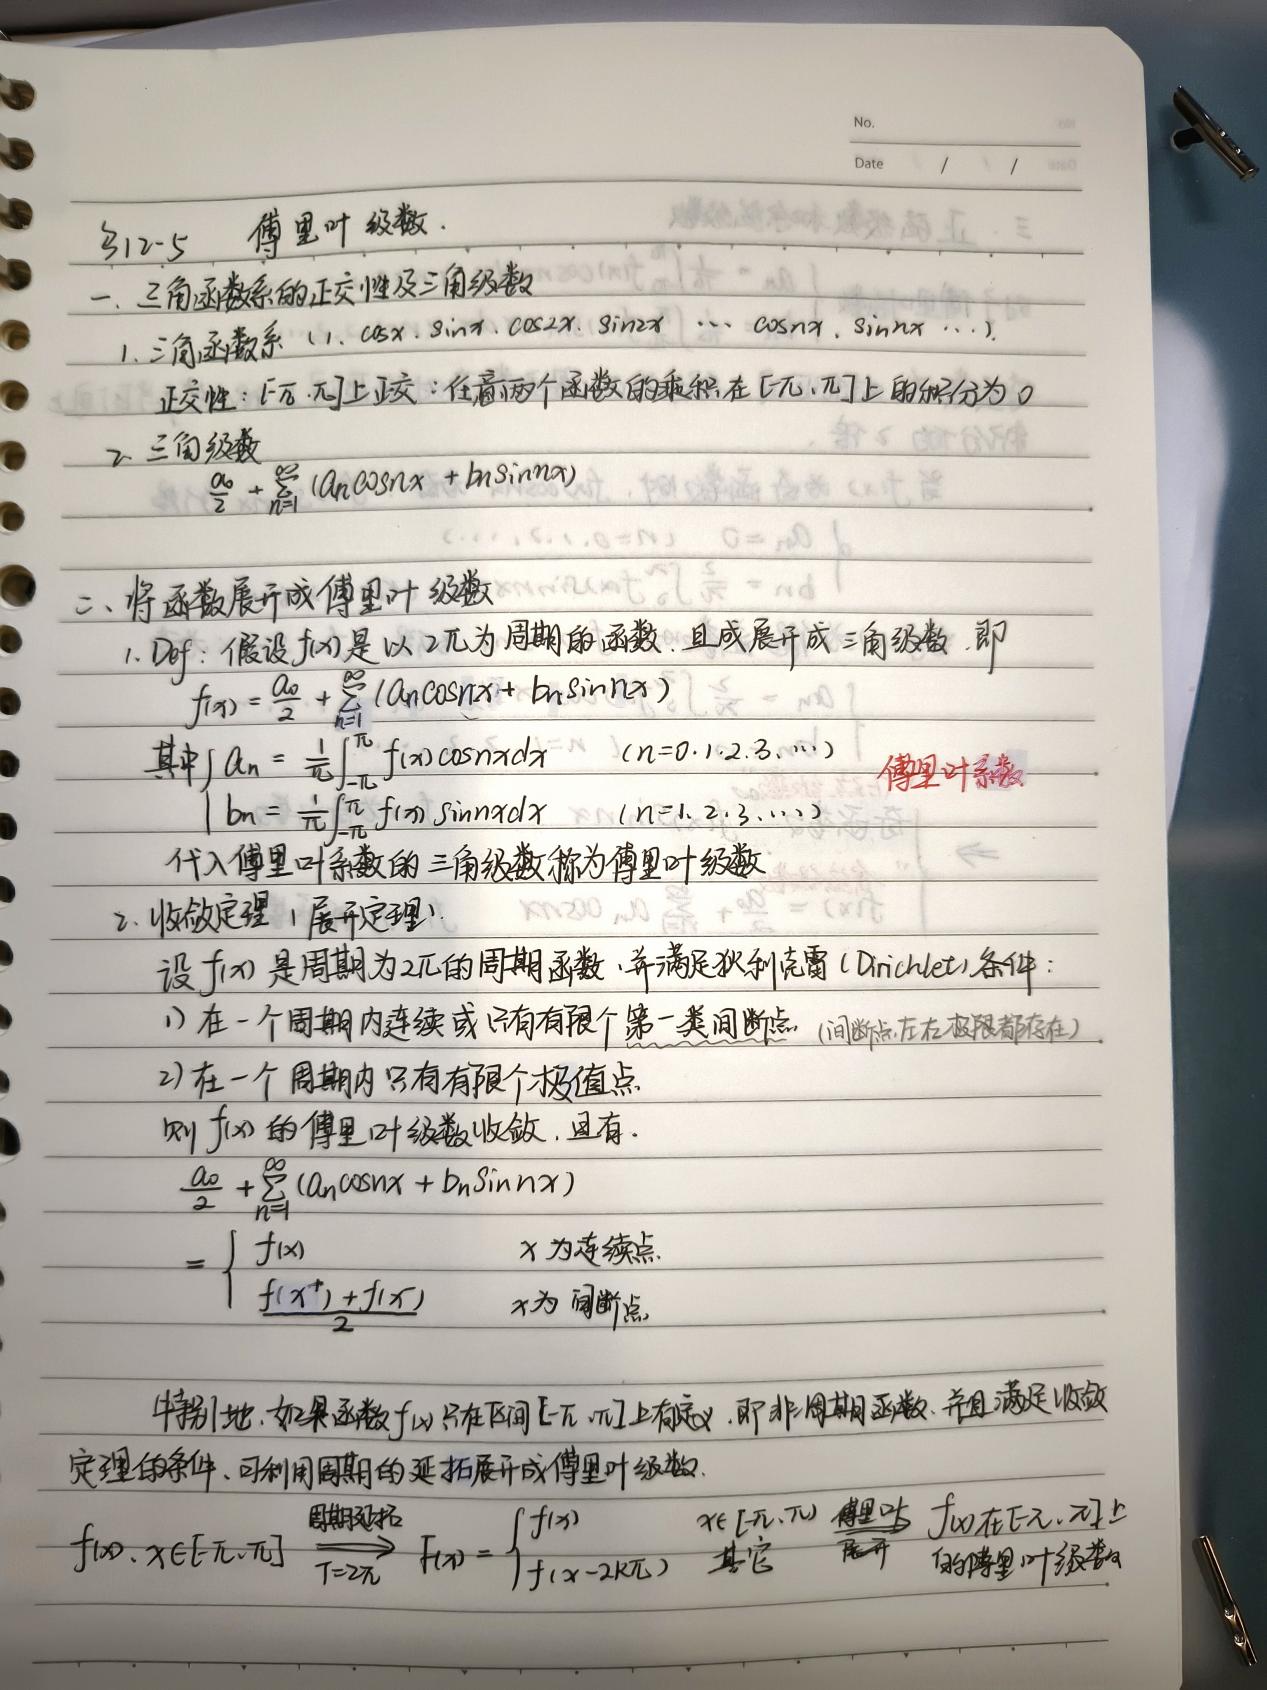 No.
Date / /
§12-5 傅里叶级数.
一、三角函数系的正交性及三角级数
1、三角函数系 (1、cosx、sinx、cos2x、sin2x … cosnx、sinnx …).
正交性：[-π、π]上正交：任意两个函数的乘积在[-π、π]上的积分为0
2、三角级数
a₀/2 + ∑_{n=1}^{∞} (aₙcosnx + bₙsinnx)
二、将函数展开成傅里叶级数
1、Def：假设f(x)是以2π为周期的函数、且成展开成三角级数、即
f(x) = a₀/2 + ∑_{n=1}^{∞} (aₙcosnx + bₙsinnx)
其中{ aₙ = 1/π ∫_{-π}^{π} f(x)cosnxdx (n=0、1、2、3、…)
bₙ = 1/π ∫_{-π}^{π} f(x)sinnxdx (n=1、2、3、…)
傅里叶系数
代入傅里叶系数的三角级数称为傅里叶级数
2、收敛定理（展开定理）.
设f(x)是周期为2π的周期函数、并满足狄利克雷(Dirichlet)条件：
1) 在一个周期内连续或只有有限个第一类间断点 (间断点左右极限都存在)
2) 在一个周期内只有有限个极值点
则f(x)的傅里叶级数收敛、且有.
a₀/2 + ∑_{n=1}^{∞} (aₙcosnx + bₙsinnx)
= { f(x) x为连续点
(f(x⁺)+f(x⁻))/2 x为间断点
特别地、如果函数f(x)只在区间[-π、π]上有定义、即非周期函数、并且满足收敛
定理的条件、可利用周期的延拓展开成傅里叶级数.
f(x)、x∈[-π、π] 周期延拓 ⟹ T=2π F(x) = { f(x) x∈[-π、π) 傅里叶 ⟹ 展开 f(x)在[-π、π]上
f(x-2kπ) 其它 的傅里叶级数